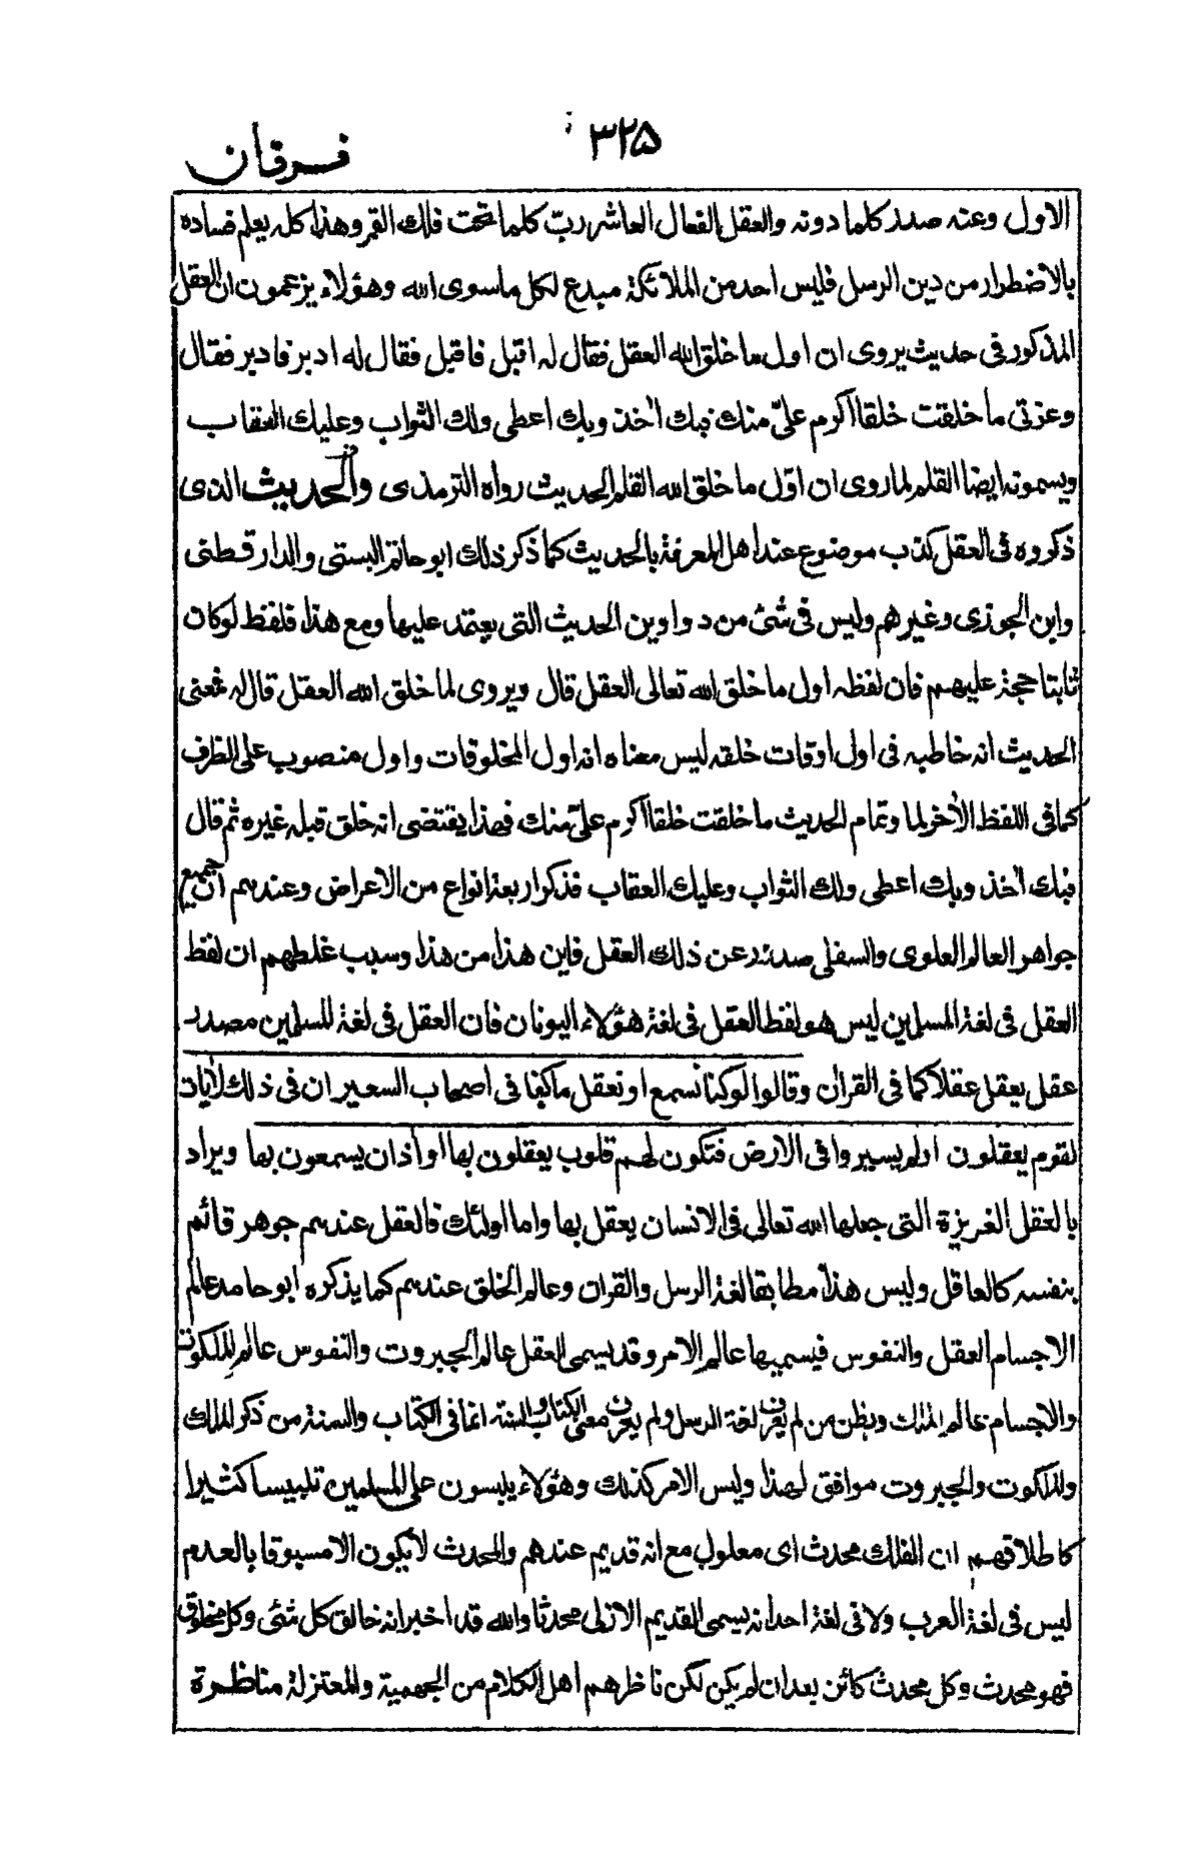 ۳۲۵
فرقان
الاول وعنه صدر كلما دونه والعقل الفعال العاشر ربّ كلما تحت فلك القمر وهذا كله يعلم فساده
بالاضطرار من دين الرسل فليس احد من الملائكة مبدع لكل ما سوى الله وهؤلاء يزعمون ان العقل
المذكور فى حديث يروى ان اول ما خلق الله العقل فقال له اقبل فاقبل فقال له ادبر فادبر فقال
وعزتى ما خلقت خلقا اكرم علىّ منك فبك اٰخذ وبك اعطى ولك الثواب وعليك العقاب
ويسمونه ايضا القلم لما روى ان اوّل ما خلق الله القلم الحديث رواه الترمذى والحديث الذى
ذكروه فى العقل كذب موضوع عند اهل المعرفة بالحديث كما ذكر ذلك ابو حاتم البستى والدارقطنى
وابن الجوزى وغيرهم وليس فى شئ من دواوين الحديث التى يعتمد عليها ومع هذا فلفظ لو كان
ثابتا حجة عليهم فان لفظه اول ما خلق الله تعالى العقل قال ويروى لما خلق الله العقل قال له فمعنى
الحديث انه خاطبه فى اول اوقات خلقه ليس معناه انه اول المخلوقات واول منصوب على الظرف
كما فى اللفظ الأخر لما وتمام الحديث ما خلقت خلقا اكرم علىّ منك فهذا يقتضى انه خلق قبله غيره ثم قال
فبك اٰخذ وبك اعطى ولك الثواب وعليك العقاب فذكر اربعة انواع من الاعراض وعندهم ان جميع
جواهر العالم العلوى والسفلى صدر عن ذلك العقل فاين هذا من هذا وسبب غلطهم ان لفظ
العقل فى لغة المسلمين ليس هو لفظ العقل فى لغة هؤلاء اليونان فان العقل فى لغة المسلمين مصدر
عقل يعقل عقلا كما فى القراٰن وقالوا لو كنا نسمع او نعقل ما كنا فى اصحاب السعير ان فى ذلك لاٰيات
لقوم يعقلون اولم يسيروا فى الارض فتكون لهم قلوب يعقلون بها او اٰذان يسمعون بها ويراد
بالعقل الغريزة التى جعلها الله تعالى فى الانسان يعقل بها واما اولئك فالعقل عندهم جوهر قائم
بنفسه كالعاقل وليس هذا مطابقا لغة الرسل والقراٰن وعالم الخلق عندهم كما يذكره ابو حامد عالم
الاجسام العقل والنفوس فيسميها عالم الامر وقد يسمى العقل عالم الجبروت والنفوس عالم الملكوت
والاجسام عالم الملك ويظن من لم يعرف لغة الرسل ولم يعرف معنى الكتاب والسنة ان ما فى الكتاب والسنة من ذكر الملك
والملكوت والجبروت موافق لهذا وليس الامر كذلك وهؤلاء يلبسون على المسلمين تلبيسا كثيرا
كاطلاقهم ان الفلك محدث اى معلول مع انه قديم عندهم والمحدث لا يكون الا مسبوقا بالعدم
ليس فى لغة العرب ولا فى لغة احد انه يسمى القديم الازلى محدثا والله قد اخبر انه خالق كل شئى وكل مخلوق
فهو محدث وكل محدث كائن بعد ان لم يكن لكن ناظرهم اهل الكلام من الجهمية والمعتزلة مناظرة